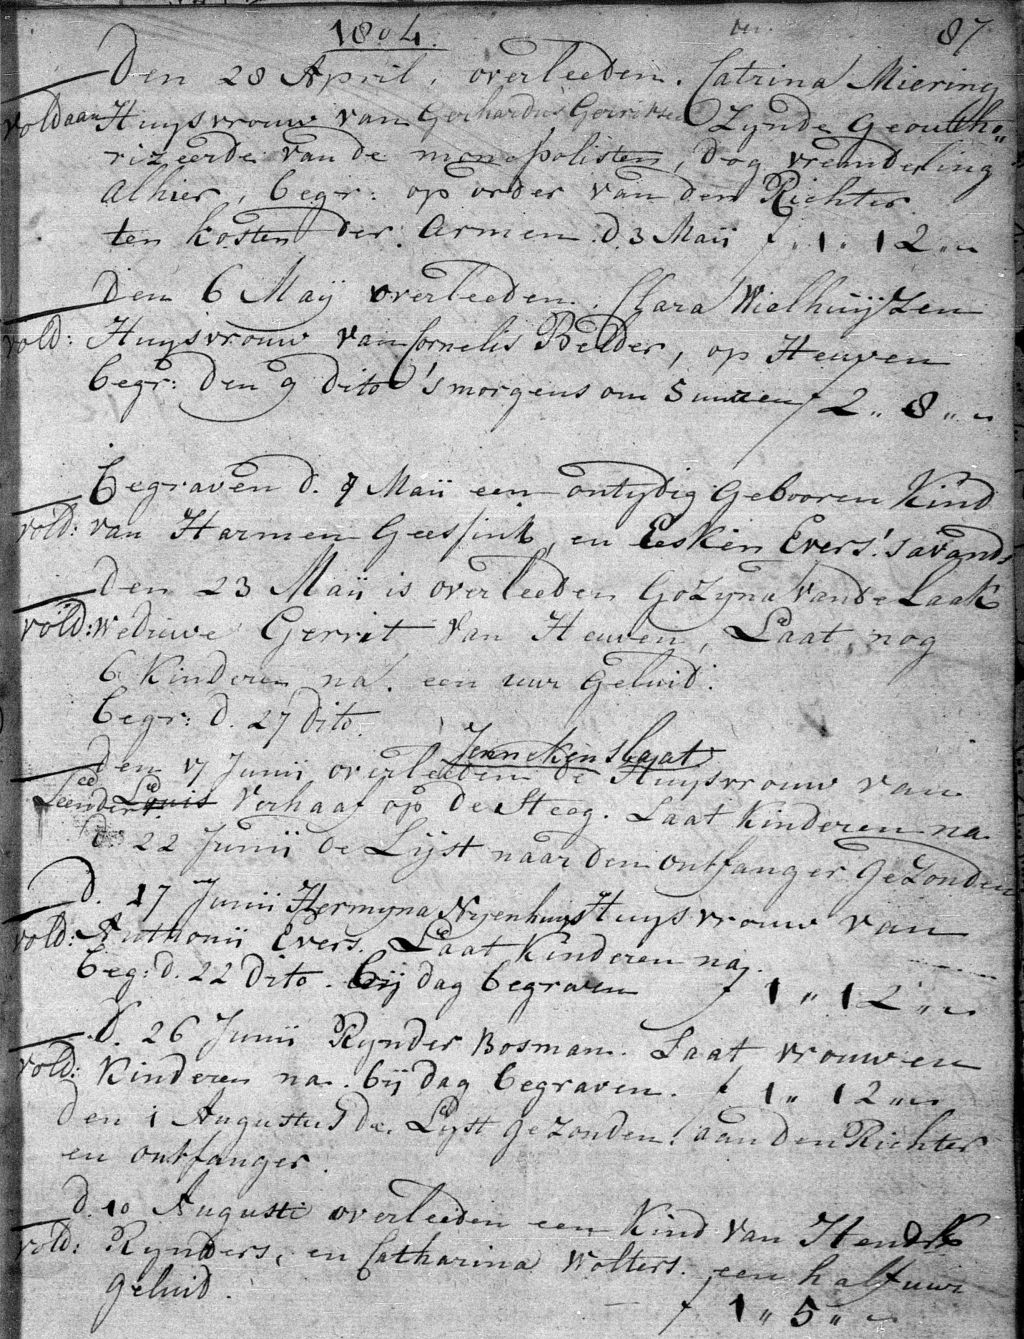 1804. 87
Den 28 April, overleeden. Catrina Miering
voldaan Huysvrouw van Gerhardus Gerritsen Zynde geoutho„
rizeerde van de monopolisten, dog vremdeling
alhier, begr: op order van den Richter
ten kosten der. armen. d. 3 Maij f „ 1 „ 12 „ „
Den 6 Maij overleeden. Clara Wielhuijzen
vold: Huysvrouw van Cornelis Belder, op Heuven
begr: den 9 dito 's morgens om 5 uuren f 2 „ 8 „ „
begraven d. 9 Maij een ontydig gebooren Kind
vold: van Harmen Geessink, en Eesken Evers. 's avands
den 23 Maij is overleeden Gozyna van de Laak
vold: Weduwe Gerrit van Heuven, Laat nog
6 Kinderen na. een uur geluid.
begr: d. 27 dito.
Jenneken Slaat
den 17 Junij overleeden de Huysvrouw van
Leendert Louis Verhaaf op de Steeg. Laat Kinderen na.
d. 22 Junij de Lijst naar den ontfanger gezonden
d. 17 Junij Hermyna Nyenhuys Huysvrouw van
vold: Anthonij Evers. Laat Kinderen na.
beg: d. 22 dito. bij dag begraven f 1 „ 12 „ „
d. 26 Junij Rynder Bosman. Laat vrouw en
vold: Kinderen na. bij dag begraven. f 1 „ 12 „ „
den 1 Augustus de Lyst gezonden. aan den Richter
en ontfanger.
d. 10 Augusti overleeden een Kind van Hendrik
vold: Rynders, en Catharina Wolters. een half uur
geluid. f 1 „ 5 „ „